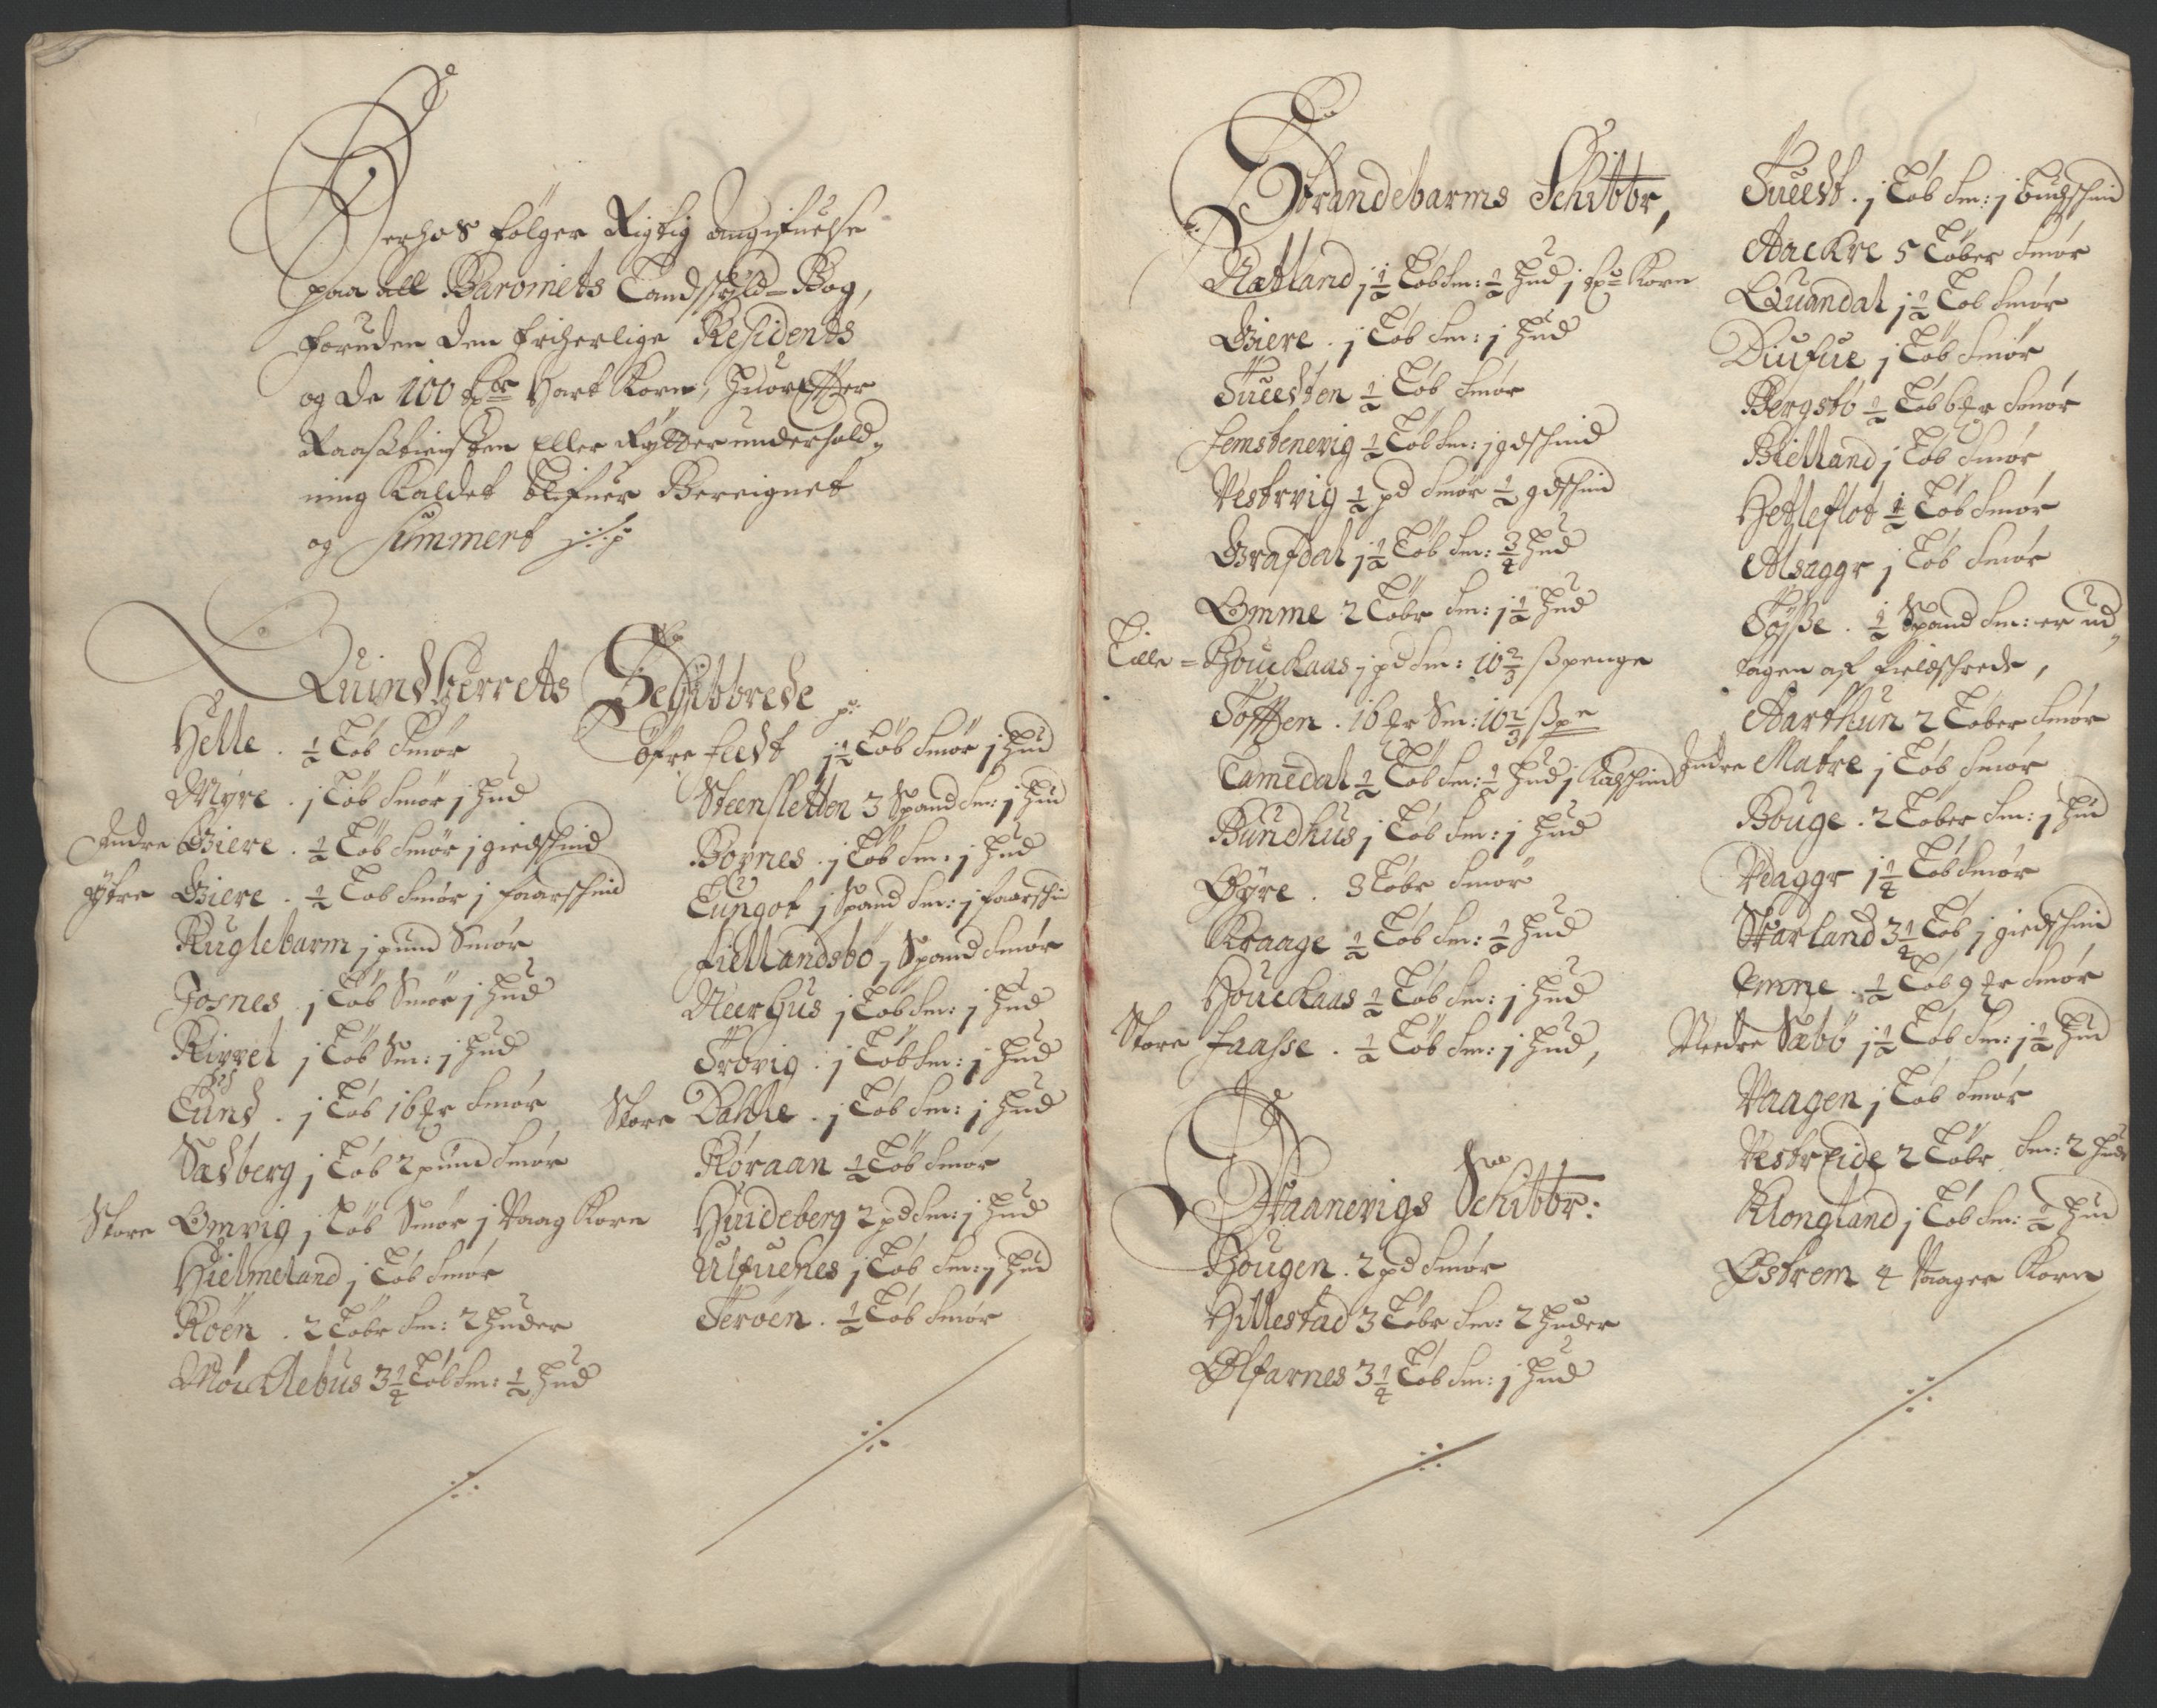 Herhos følger Rigtig angifuelse
paa all Baroniets Landschyld-Bog,
foruden den friherlige Residents
og de 100 Hart Korn, huorefter
Raastienisten Eller Rytterunderhold-
ning Kaldet blifuer Bereignet
og Summert
Quindherrets Schibbrede
Helle . ½ Løb Smør
Myre . j Løb Smør j hud
Indre Giere . ½ Løb Smør j giedschind
ÿtre Giere . ½ Løb Smør j faarschind
Kuglebarm j pund Smør
Josnes . j Løb Smør j hud
Rivvel j Løb Sm: j hud
Lund . j Løb 16 Smør
Sædberg j Løb 2 pund Smør
Store Omvig j Løb Smør j Vaag Korn
Hielmeland j Løb Smør
Røen . 2 Løbr Sm: 2 huder
Møcklebus 3¼ Løb Sm: ½ hud
øfre feedt j½ Løb Smør j hud
Steensletten 3 Spand Sm: j hud
Bognes . j Løb Sm: j hud
Lungot j Spand Sm: j faarschi
fiellandsbø j Spand Smør
Neerhus j Løb Sm: j hud
Trovig . j Løb Sm: j hud
Store Dahle . j Løb Sm: j hud
Røraan ½ Løb Smør
Huideberg 2 pd Sm: j hud
Ulfuenes j Løb Sm: j hud
Terøen . ½ Løb Smør
Strandebarms Schibbr,
Nætland j½ Løb Sm: ½ hud j Korn
Giere . j Løb Sm: j hud
Tueedten ½ Løb Smør
femstenevig ½ Løb Sm: j gdschind
Vestrvig ½ pd Smør ½ gdschind
Grafdal j½ Løb Sm: ¾ hud
Omme 2 Løbr Sm: j½ hud
Lille = Houckaas j pd Sm: 10⅔ ß penge
Tofften . 16 Sm: 10⅔ ß
Lamedal ½ Løb Sm: ½ hud j Kalschind
Bundhus j Løb Sm: j hud
Øyre . 3 Løbr Smør
Kraage ½ Løb Sm: ½ hud
Houckaas ½ Løb Sm: j hud
Store faasse . ½ Løb Sm: j hud,
Schaanevigs Schibbr:
Hougen . 2 pd Smør
Hillestad 3 Løbr Sm: 2 huder
Ølfarnes 3¼ Løb Sm: j hud
Tueedt . j Løb Sm: j buchschind
Aackre 5 Løber Smør
Quandal j½ Løb Smør
Diufue j Løb Smør
Bergstø ½ Løb 6 Smør
Bielland j Løb Smør
Hetleflot ½ Løb Smør
Alsaggr j Løb Smør
Tøsße . ½ Spand Sm: er ud-
tagen af fieldschrede,
Aarthun 2 Løber Smør
Indre Matre j Løb Smør
Bouge . 2 Løber Sm: j hud
Vdaggr j¼ Løb Smør
Skarland 3¼ Løb j giedschind
Emne . ½ Løb 9 Smør
Needre Sæbø j½ Løb Sm: j½ hud
Vaagen j Løb Smør
Vestreide 2 Løbr Sm: 2 hudr
Klongland j Løb Sm: ½ hud
Østrem 4 Vaager Korn